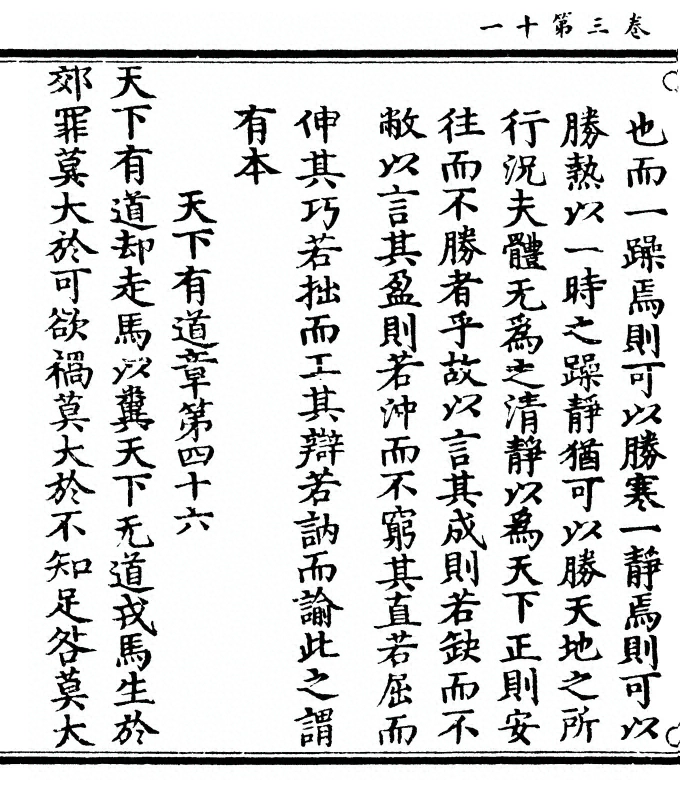 卷三第十一
也而一躁焉則可以勝寒一靜焉則可以
勝熱以一時之躁靜猶可以勝天地之所
行況夫體无爲之清靜以爲天下正則安
往而不勝者乎故以言其成則若缺而不
敝以言其盈則若沖而不窮其直若屈而
伸其巧若拙而工其辯若訥而諭此之謂
有本
天下有道章第四十六
天下有道却走馬以糞天下无道戎馬生於
郊罪莫大於可欲禍莫大於不知足咎莫大